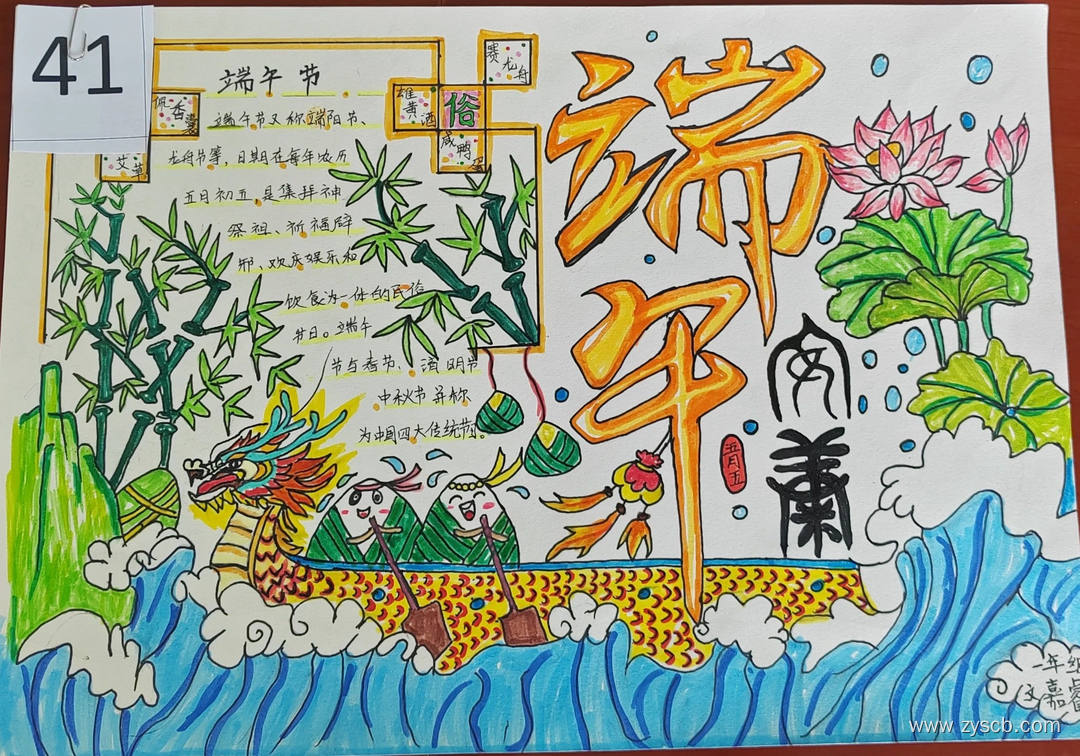 41
端午节
端午节又称端阳节、
龙舟节等，日期在每年农历
五日初五，是集拜神
祭祖、祈福辟
邪、欢庆娱乐和
饮食为一体的民俗
节日。端午
节与春节、清明节
中秋节并称
为中国四大传统节日。
佩香囊
艾草
雄黄酒
俗
咸鸭蛋
赛龙舟
端午
安康
五月五
一年级
文嘉睿
www.zyscb.com